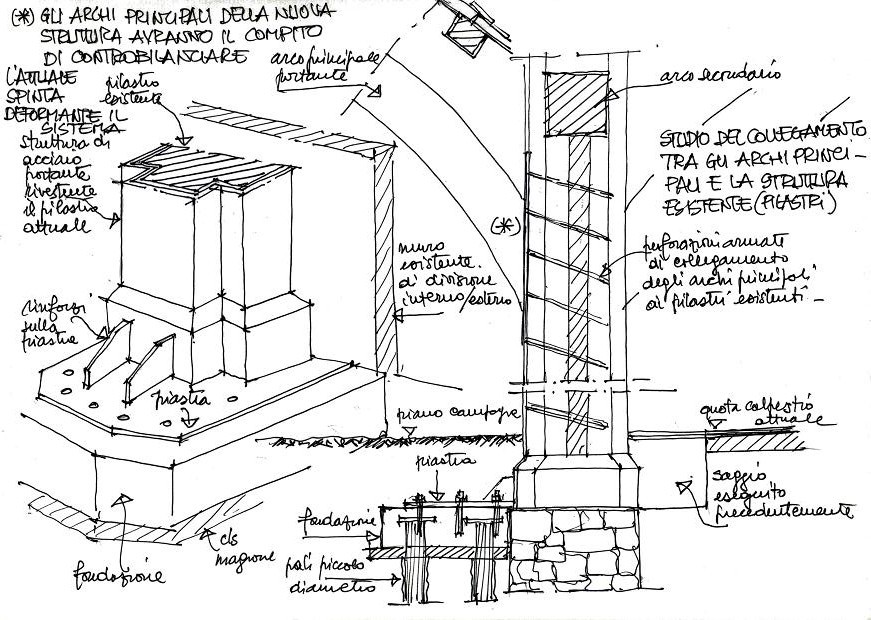 (*) GLI ARCHI PRINCIPALI DELLA NUOVA
STRUTTURA AVRANNO IL COMPITO
DI CONTROBILANCIARE
L'ATTUALE
SPINTA
DEFORMANTE IL
SISTEMA
pilastro
esistente
struttura di
acciaio
portante
rivestente
il pilastro
attuale
rinforzi
sulla
piastra
piastra
fondazione
cls
magrone
arco principale
portante
muro
esistente
di divisione
interno/esterno
(*)
arco secondario
STUDIO DEL COLLEGAMENTO
TRA GLI ARCHI PRINCI-
PALI E LA STRUTTURA
ESISTENTE (PILASTRI)
perforazioni armate
di collegamento
degli archi principali
ai pilastri esistenti -
piano campagna
quota calpestio
attuale
piastra
saggio
eseguito
precedentemente
fondazione
pali piccolo
diametro